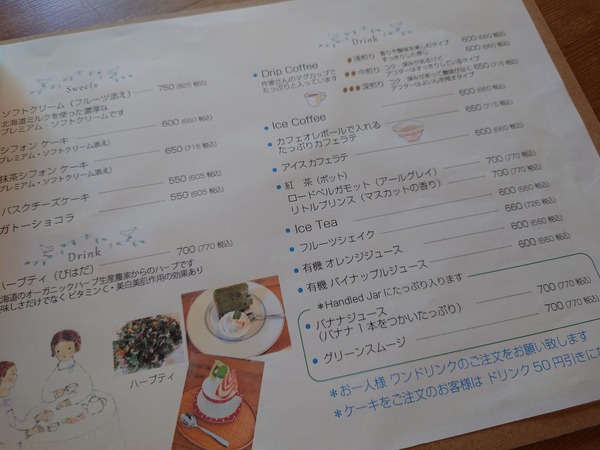 Sweets
ソフトクリーム（フルーツ添え） 750 (825 税込)
北海道ミルクを使った濃厚な
プレミアム・ソフトクリームです
シフォン ケーキ 600 (660 税込)
プレミアム・ソフトクリーム添え）
抹茶シフォン ケーキ 650 (715 税込)
プレミアム・ソフトクリーム添え）
バスクチーズケーキ 550 (605 税込)
ガトーショコラ 550 (605 税込)
Drink
ハーブティ（びはだ） 700 (770 税込)
北海道のオーガニックハーブ生産農家からのハーブです
美味しさだけでなく ビタミンC・美白美肌作用の効果あり
ハーブティ
Drink
Drip Coffee
作家さんのマグカップで
たっぷりと入っています
浅煎り 香りや酸味を楽しむタイプ 600 (660 税込)
すっきりした感じ
中煎り コク、深みがあるけど 600 (660 税込)
アフターはすっきりしているタイプ
深煎り コク、深みがあって酸味がなく 650 (715 税込)
アフターはズシリを残すタイプ
Ice Coffee 600 (660 税込)
カフェオレボールで入れる 650 (715 税込)
たっぷりカフェラテ
アイスカフェラテ 600 (660 税込)
紅 茶（ポット）
ロードベルガモット（アールグレイ） 700 (770 税込)
リトルプリンス（マスカットの香り） 700 (770 税込)
Ice Tea 600 (660 税込)
フルーツシェイク 660 (726 税込)
有機 オレンジジュース 600 (660 税込)
有機 パイナップルジュース 600 (660 税込)
＊Handled Jar にたっぷり入ります
バナナジュース 700 (770 税込)
（バナナ 1 本をつかいたっぷり）
グリーンスムージ 700 (770 税込)
＊お一人様 ワンドリンクのご注文をお願い致します
＊ケーキをご注文のお客様は ドリンク 50 円引きに